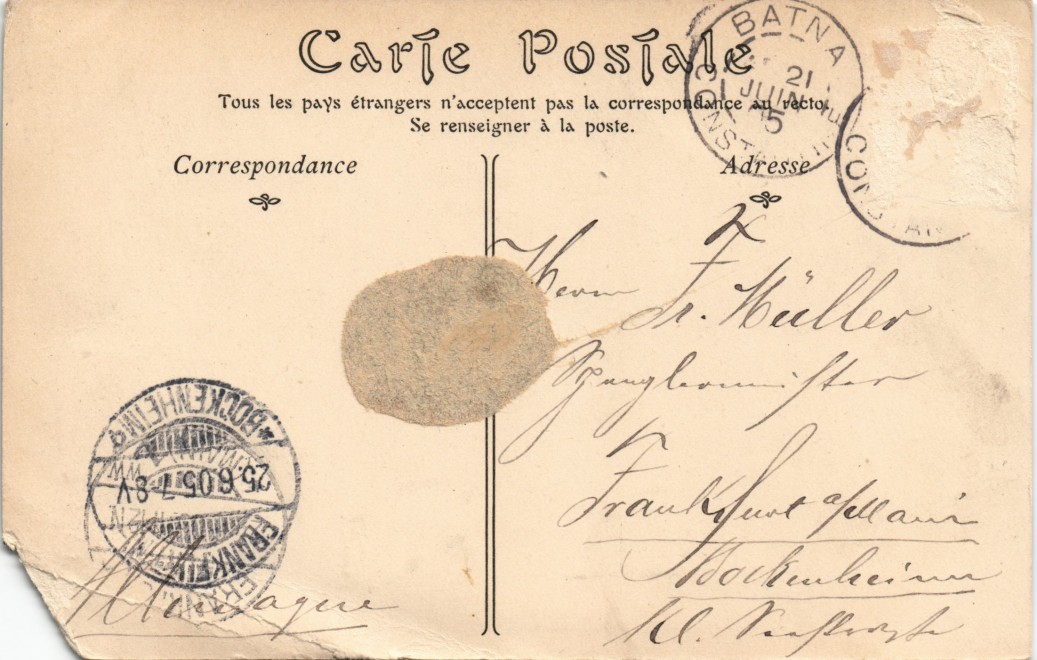 Carte Postale
Tous les pays étrangers n'acceptent pas la correspondance au recto.
Se renseigner à la poste.
Correspondance
Adresse
BATNA
21
JUIN
5
CONSTANTINE
CONSTAN
Herrn Fr. Müller
Spenglermeister
Frankfurt a/Main
Bockenheim
Kl.
Allemagne
BOCKENHEIM
(MAIN)
25.6.05.7-8V.
FRANKFURT